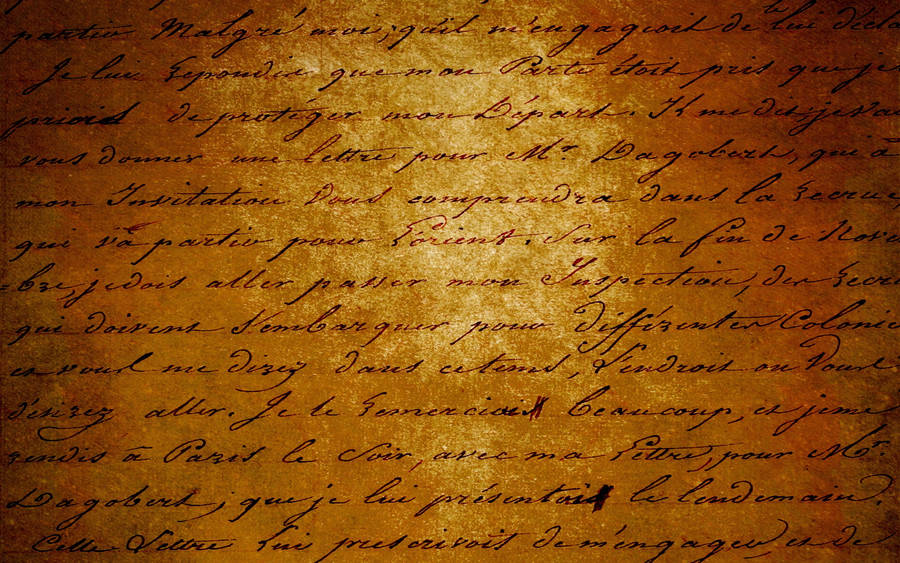 partir Malgré moi; qu'il m'engageoit de lui décla
Je lui Repondis que mon Parti étoit pris que je
priois de protéger mon Départ. Il me dit, je vai
vous donner une lettre pour Mr. Dagobert, qui à
mon Invitation Vous comprendra dans la Recrue,
qui va partir pour Lorient. Sur la fin de Nove
=bre, je dois aller passer mon Inspection, des Recru
qui doivent S'embarquer pour différentes Colonie
et vous me direz dans ce tems, L'endroit ou Vous
désirez aller. Je le Remerciois beaucoup, et je me
rendis à Paris le Soir, avec ma Lettre, pour Mr.
Dagobert, que je lui présentois le lendemain.
Cette Lettre Lui prescrivoit de m'engager, et de